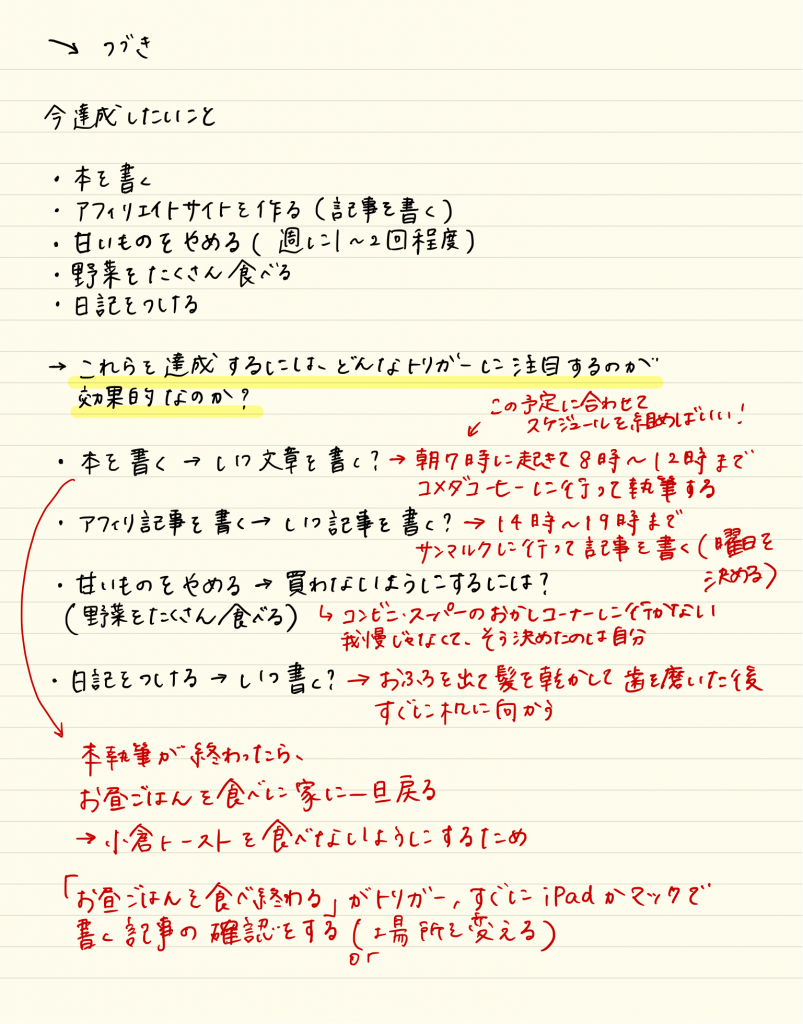 → つづき
今達成したいこと
・本を書く
・アフィリエイトサイトを作る(記事を書く)
・甘いものをやめる(週に1〜2回程度)
・野菜をたくさん食べる
・日記をつける
→ これらを達成するには、どんなトリガーに注目するのが
効果的なのか?
この予定に合わせて
スケジュールを組めばいい!
・本を書く → いつ文章を書く? → 朝7時に起きて8時〜12時まで
コメダコーヒーに行って執筆する
・アフィリ記事を書く → いつ記事を書く? → 14時〜19時まで
サンマルクに行って記事を書く(曜日を
決める)
・甘いものをやめる → 買わないようにするには?
(野菜をたくさん食べる) ↳ コンビニ・スーパーのおかしコーナーに行かない
我慢じゃなくて、そう決めたのは自分
・日記をつける → いつ書く? → おふろを出て髪を乾かして歯を磨いた後
すぐに机に向かう
本執筆が終わったら、
お昼ごはんを食べに家に一旦戻る
→ 小倉トーストを食べないようにするため
「お昼ごはんを食べ終わる」がトリガー、すぐにiPadかマックで
書く記事の確認をする(場所を変える)
or